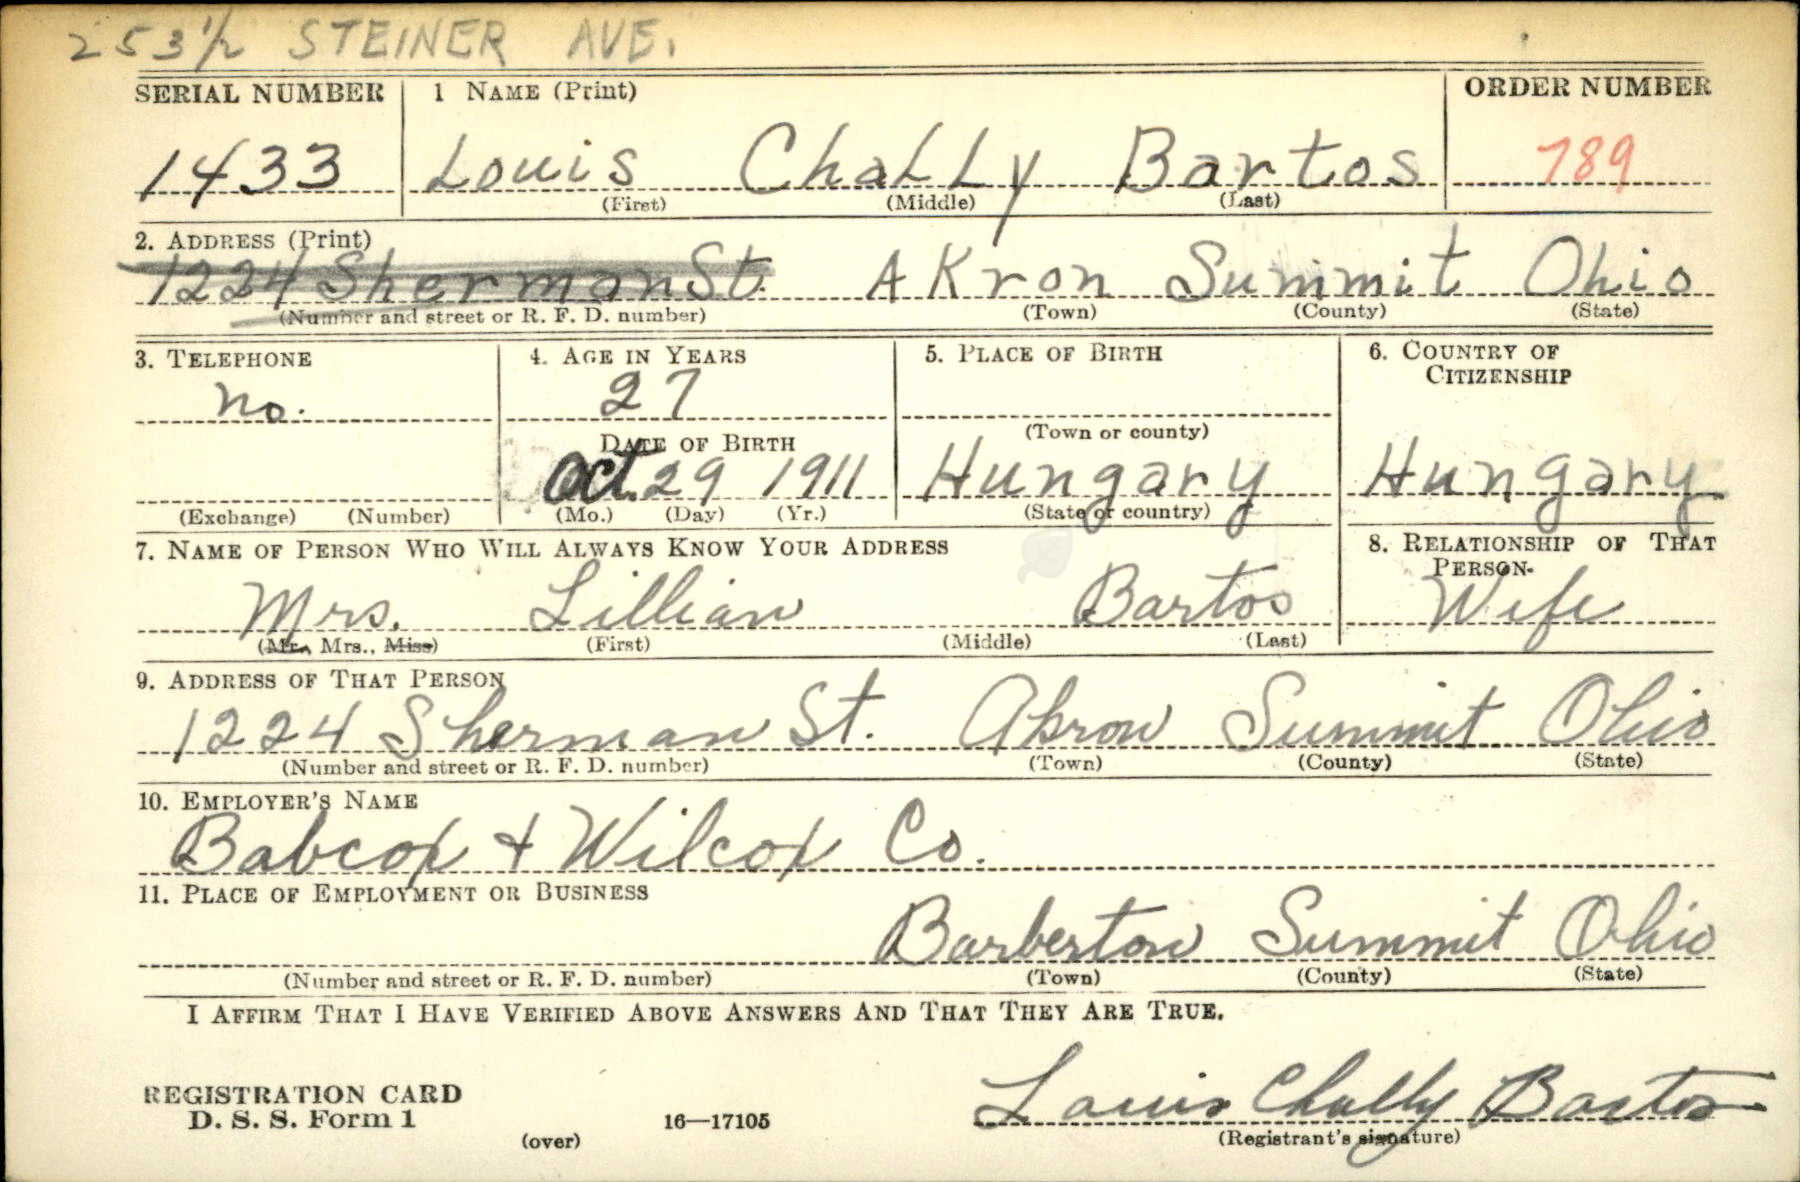 253 1/2 STEINER AVE.
SERIAL NUMBER 1 NAME (Print) ORDER NUMBER
1433 Louis ChaLLy Bartos 789
(First) (Middle) (Last)
2. ADDRESS (Print)
1224 Sherman St. AKron Summit Ohio
(Number and street or R. F. D. number) (Town) (County) (State)
3. TELEPHONE 4. AGE IN YEARS 5. PLACE OF BIRTH 6. COUNTRY OF CITIZENSHIP
no. 27
DATE OF BIRTH (Town or county)
Oct. 29 1911 Hungary Hungary
(Exchange) (Number) (Mo.) (Day) (Yr.) (State or country)
7. NAME OF PERSON WHO WILL ALWAYS KNOW YOUR ADDRESS 8. RELATIONSHIP OF THAT PERSON
Mrs. Lillian Bartos Wife
(Mr., Mrs., Miss) (First) (Middle) (Last)
9. ADDRESS OF THAT PERSON
1224 Sherman St. Akron Summit Ohio
(Number and street or R. F. D. number) (Town) (County) (State)
10. EMPLOYER'S NAME
Babcox + Wilcox Co.
11. PLACE OF EMPLOYMENT OR BUSINESS
Barberton Summit Ohio
(Number and street or R. F. D. number) (Town) (County) (State)
I AFFIRM THAT I HAVE VERIFIED ABOVE ANSWERS AND THAT THEY ARE TRUE.
REGISTRATION CARD
D. S. S. Form 1 16—17105 Louis Chally Bartos
(over) (Registrant's signature)